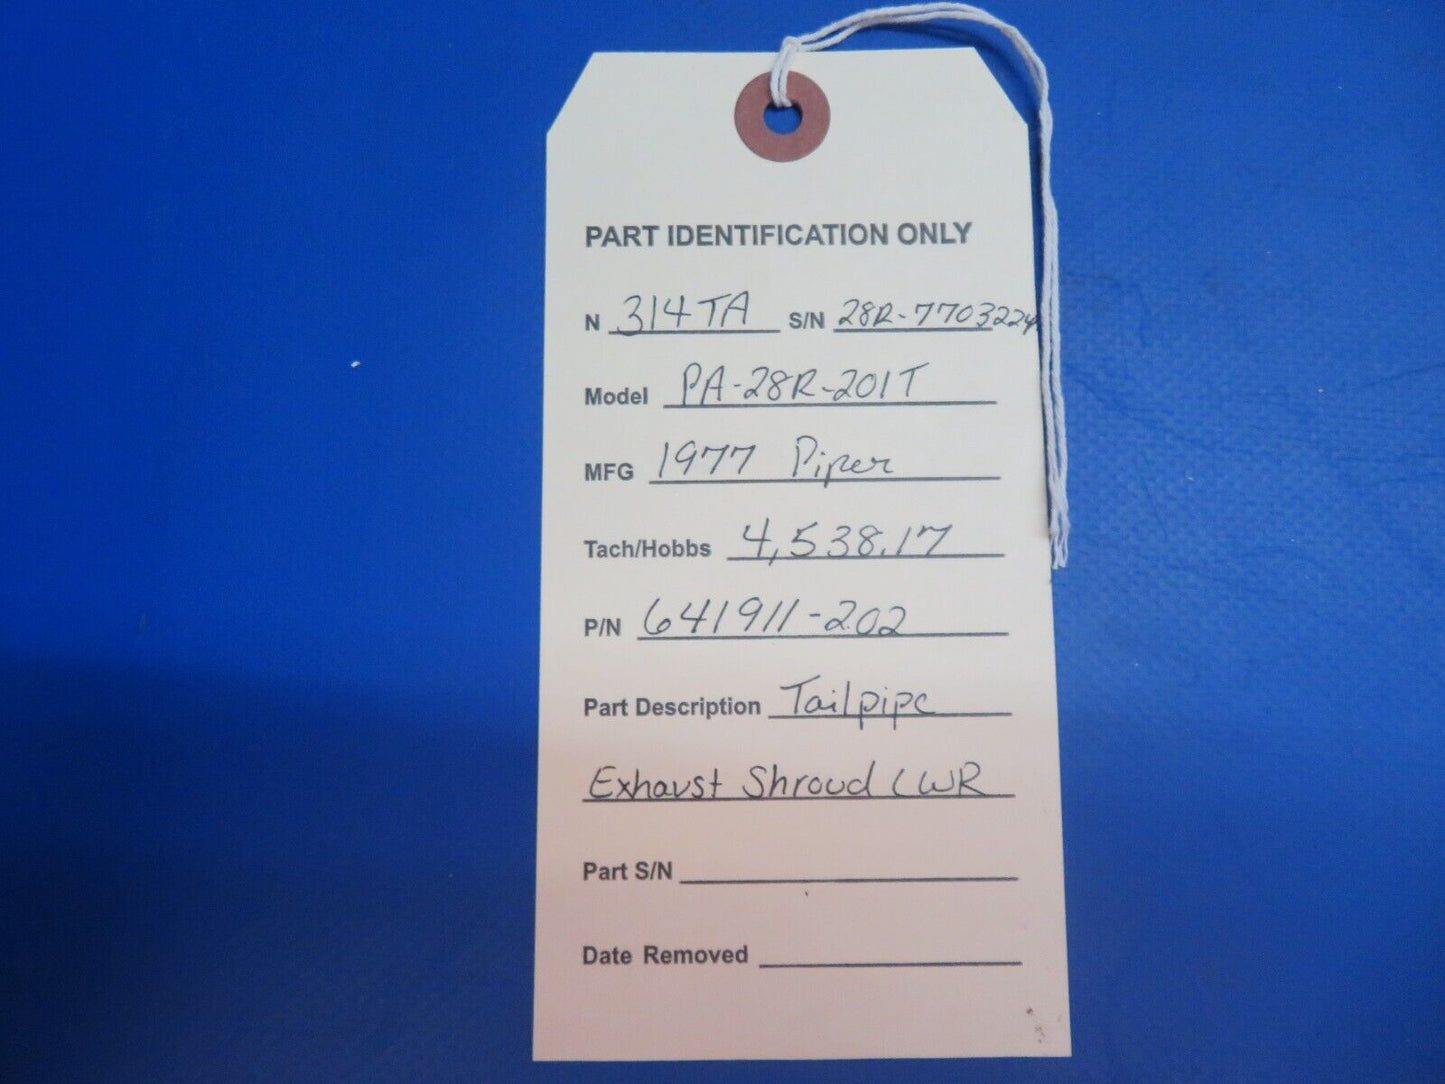 PART IDENTIFICATION ONLY
N 314TA S/N 28R-7703224
Model PA-28R-201T
MFG 1977 Piper
Tach/Hobbs 4,538.17
P/N 641911-202
Part Description Tailpipe
Exhaust Shroud LWR
Part S/N
Date Removed